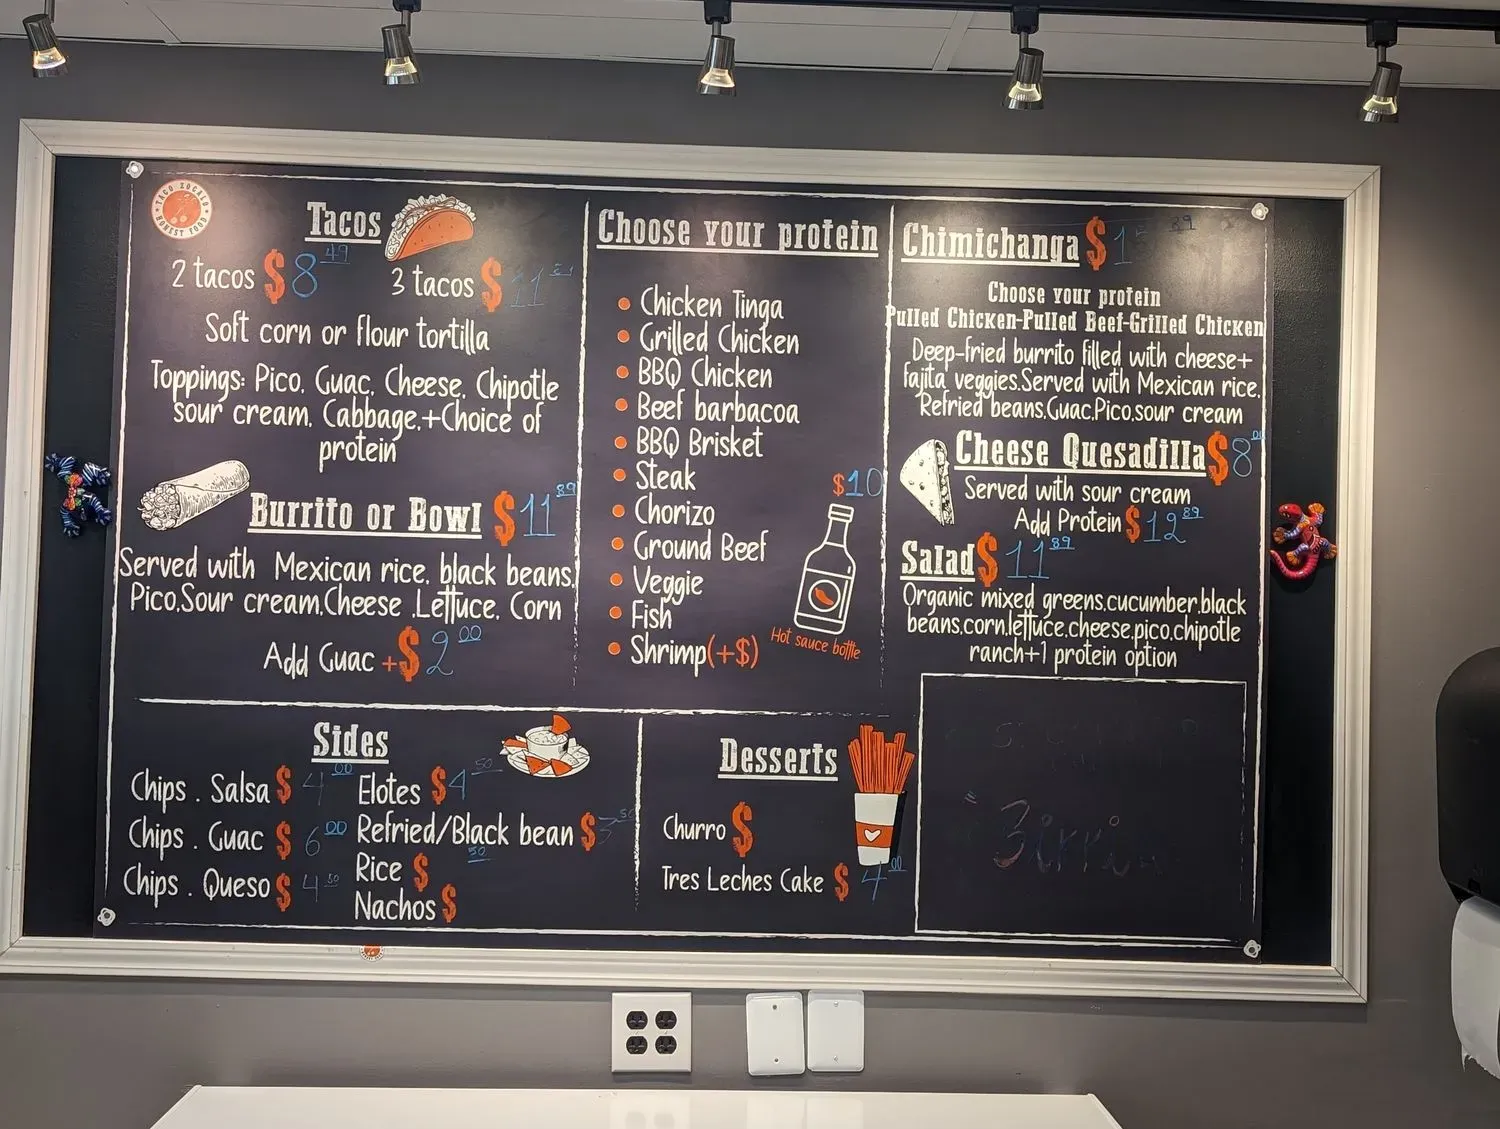 TACO ZOCALO
HONEST FOOD
Tacos
2 tacos $8.49
3 tacos $11
Soft corn or flour tortilla
Toppings: Pico, Guac, Cheese, Chipotle
sour cream, Cabbage,+Choice of
protein
Burrito or Bowl $11.89
Served with Mexican rice, black beans,
Pico,Sour cream,Cheese ,Lettuce, Corn
Add Guac +$2.00
Choose your protein
Chicken Tinga
Grilled Chicken
BBQ Chicken
Beef barbacoa
BBQ Brisket
Steak
Chorizo
Ground Beef
Veggie
Fish
Shrimp(+$)
$10
Hot sauce bottle
Chimichanga $
Choose your protein
Pulled Chicken-Pulled Beef-Grilled Chicken
Deep-fried burrito filled with cheese+
fajita veggies.Served with Mexican rice,
Refried beans,Guac,Pico,sour cream
Cheese Quesadilla $8.00
Served with sour cream
Add Protein $12.89
Salad $11.89
Organic mixed greens,cucumber,black
beans,corn,lettuce,cheese,pico,chipotle
ranch+1 protein option
Sides
Chips . Salsa $4.00
Chips . Guac $6.00
Chips . Queso $4.50
Elotes $4.50
Refried/Black bean $3.50
Rice $ 50
Nachos $
Desserts
Churro $
Tres Leches Cake $4.00